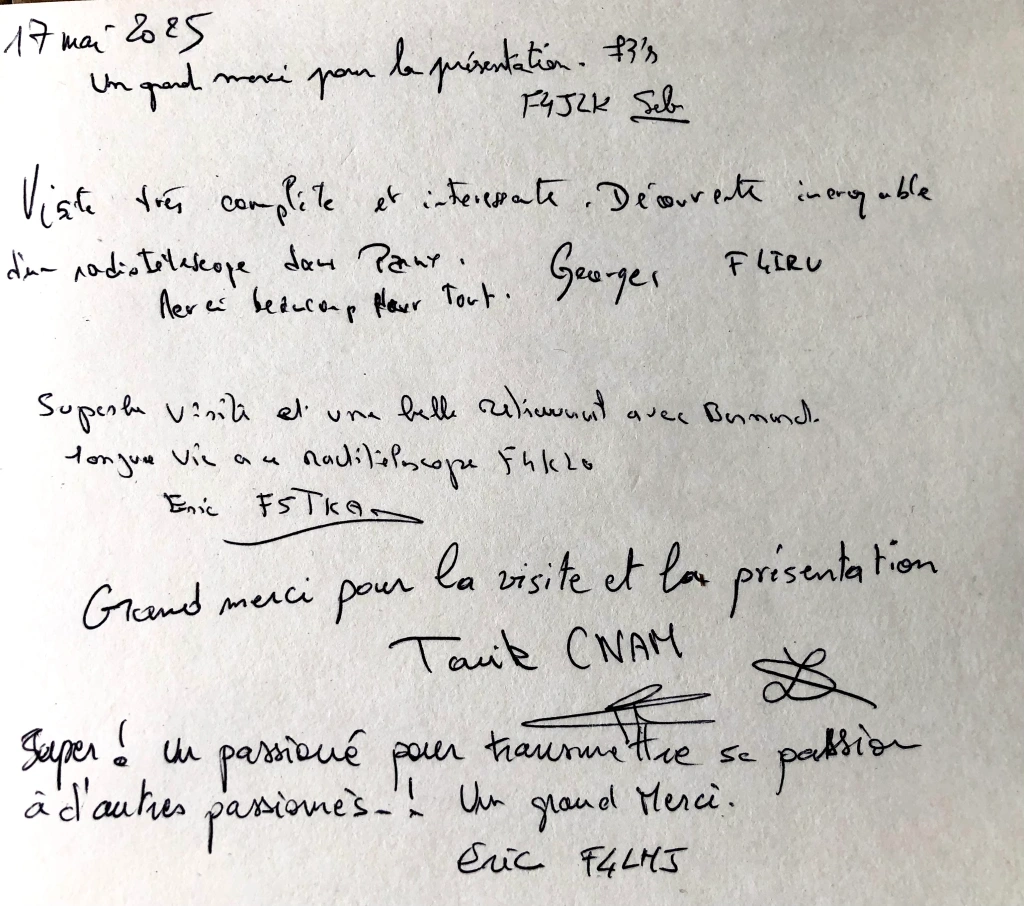 17 mai 2025
Un grand merci pour la présentation. 73's
F4JZK Seb
Visite très complète et interessante. Découverte incroyable
d'un radiotélescope dans Paris.
Merci beaucoup pour Tout. Georges F4IRU
Superbe visite et une belle avec Bernard.
longue vie au radiotélescope F4KLO
Eric F5TKA
Grand merci pour la visite et la présentation
Tarik CNAM
Super! Un passioné pour transmettre sa passion
à d'autres passionés-! Un grand Merci.
Eric F4LMJ